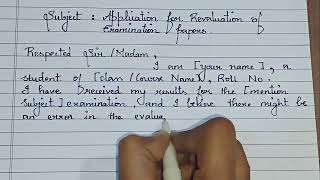 Subject : Application for Revaluation of
Examination papers.
Respected Sir / Madam,
I am [your name], a
student of [class / Course Name], Roll No.
I have received my results for the [mention
subject] examination, and I believe there might be
an error in the evalua